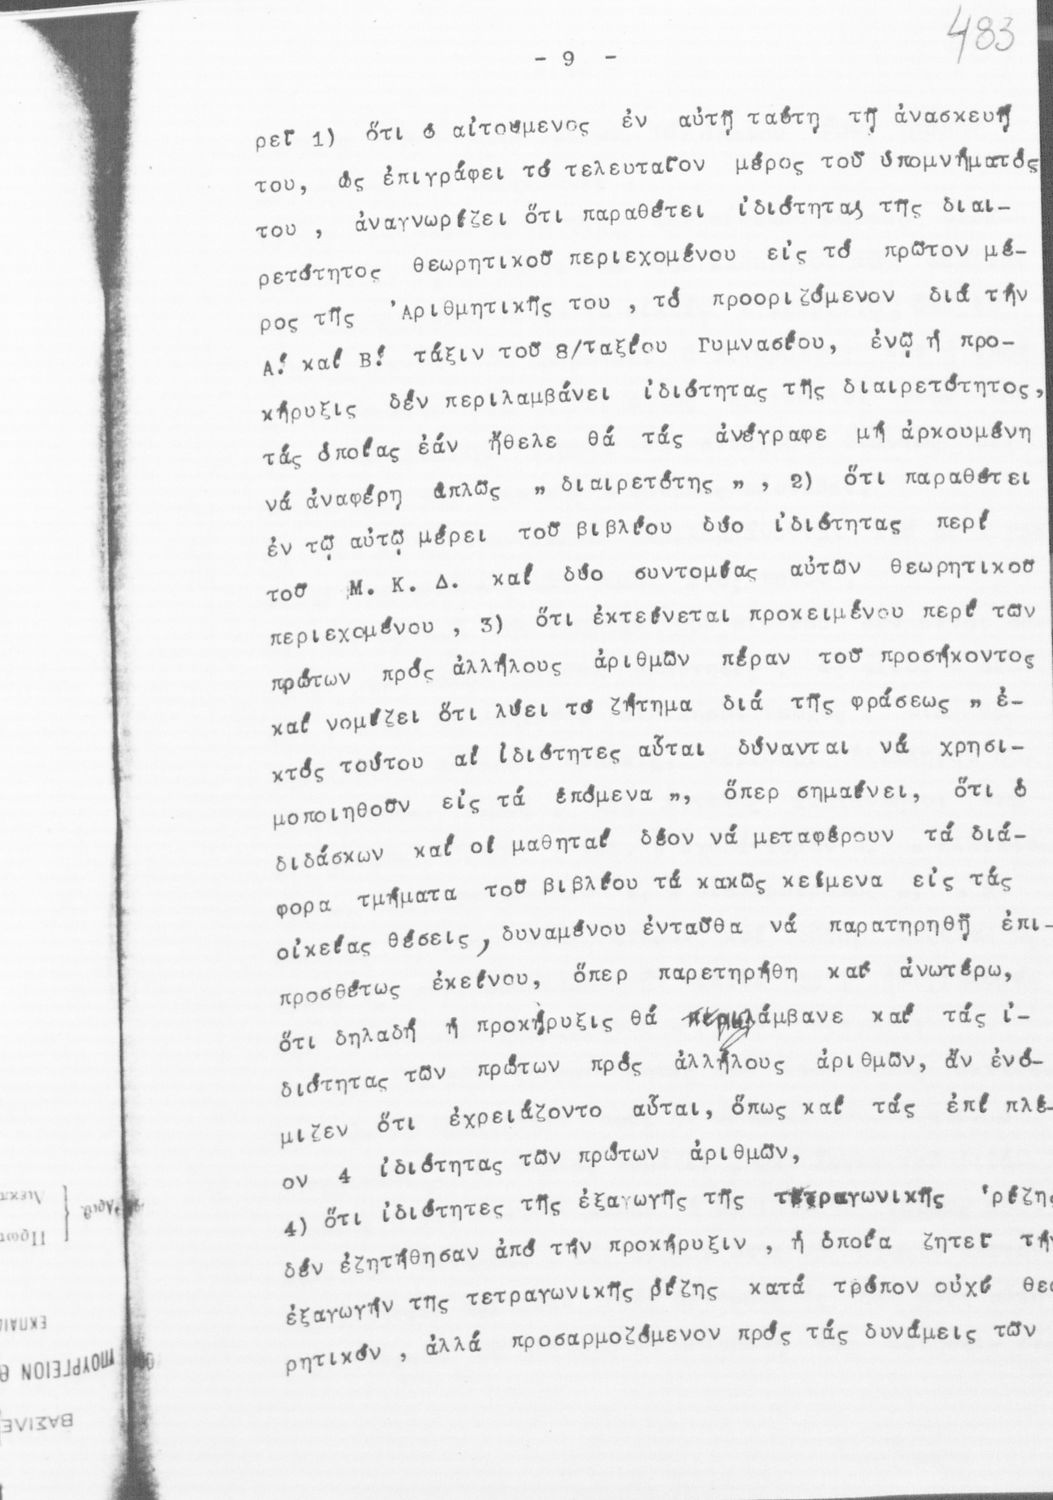 483
- 9 -
ρεῖ 1) ὅτι ὁ αἰτούμενος ἐν αὐτῇ ταύτῃ τῇ ἀνασκευῇ
του, ὡς ἐπιγράφει τό τελευταῖον μέρος τοῦ ὑπομνήματός
του , ἀναγνωρίζει ὅτι παραθέτει ἰδιότητας τῆς διαι-
ρετότητος θεωρητικοῦ περιεχομένου εἰς τό πρῶτον μέ-
ρος τῆς Ἀριθμητικῆς του , τό προοριζόμενον διά τήν
Α! καί Β! τάξιν τοῦ 8/ταξίου Γυμνασίου, ἐνῷ ἡ προ-
κήρυξις δέν περιλαμβάνει ἰδιότητας τῆς διαιρετότητος,
τάς ὁποίας ἐάν ἤθελε θά τάς ἀνέγραφε μή ἀρκουμένη
νά ἀναφέρῃ ἁπλῶς „ διαιρετότης „ , 2) ὅτι παραθέτει
ἐν τῷ αὐτῷ μέρει τοῦ βιβλίου δύο ἰδιότητας περί
τοῦ Μ. Κ. Δ. καί δύο συντομίας αὐτῶν θεωρητικοῦ
περιεχομένου , 3) ὅτι ἐκτείνεται προκειμένου περί τῶν
πρώτων πρός ἀλλήλους ἀριθμῶν πέραν τοῦ προσήκοντος
καί νομίζει ὅτι λύει τό ζήτημα διά τῆς φράσεως „ ἐ-
κτός τούτου αἱ ἰδιότητες αὗται δύνανται νά χρησι-
μοποιηθοῦν εἰς τά ἑπόμενα „, ὅπερ σημαίνει, ὅτι ὁ
διδάσκων καί οἱ μαθηταί δέον νά μεταφέρουν τά διά-
φορα τμήματα τοῦ βιβλίου τά κακῶς κείμενα εἰς τάς
οἰκείας θέσεις, δυναμένου ἐνταῦθα νά παρατηρηθῇ ἐπι-
προσθέτως ἐκείνου, ὅπερ παρετηρήθη καί ἀνωτέρω,
ὅτι δηλαδή ἡ προκήρυξις θά περιλάμβανε καί τάς ἰ-
διότητας τῶν πρώτων πρός ἀλλήλους ἀριθμῶν, ἄν ἐνό-
μιζεν ὅτι ἐχρειάζοντο αὗται, ὅπως καί τάς ἐπί πλέ-
ον 4 ἰδιότητας τῶν πρώτων ἀριθμῶν,
4) ὅτι ἰδιότητες τῆς ἐξαγωγῆς τῆς τετραγωνικῆς ῥίζης
δέν ἐζητήθησαν ἀπό τήν προκήρυξιν , ἡ ὁποία ζητεῖ τήν
ἐξαγωγήν της τετραγωνικῆς ῥίζης κατά τρόπον οὐχί θεω
ρητικόν , ἀλλά προσαρμοζόμενον πρός τάς δυνάμεις τῶν
Ἀριθ.
ΥΠΟΥΡΓΕΙΟΝ Θ
ΒΑΣΙΛΕ